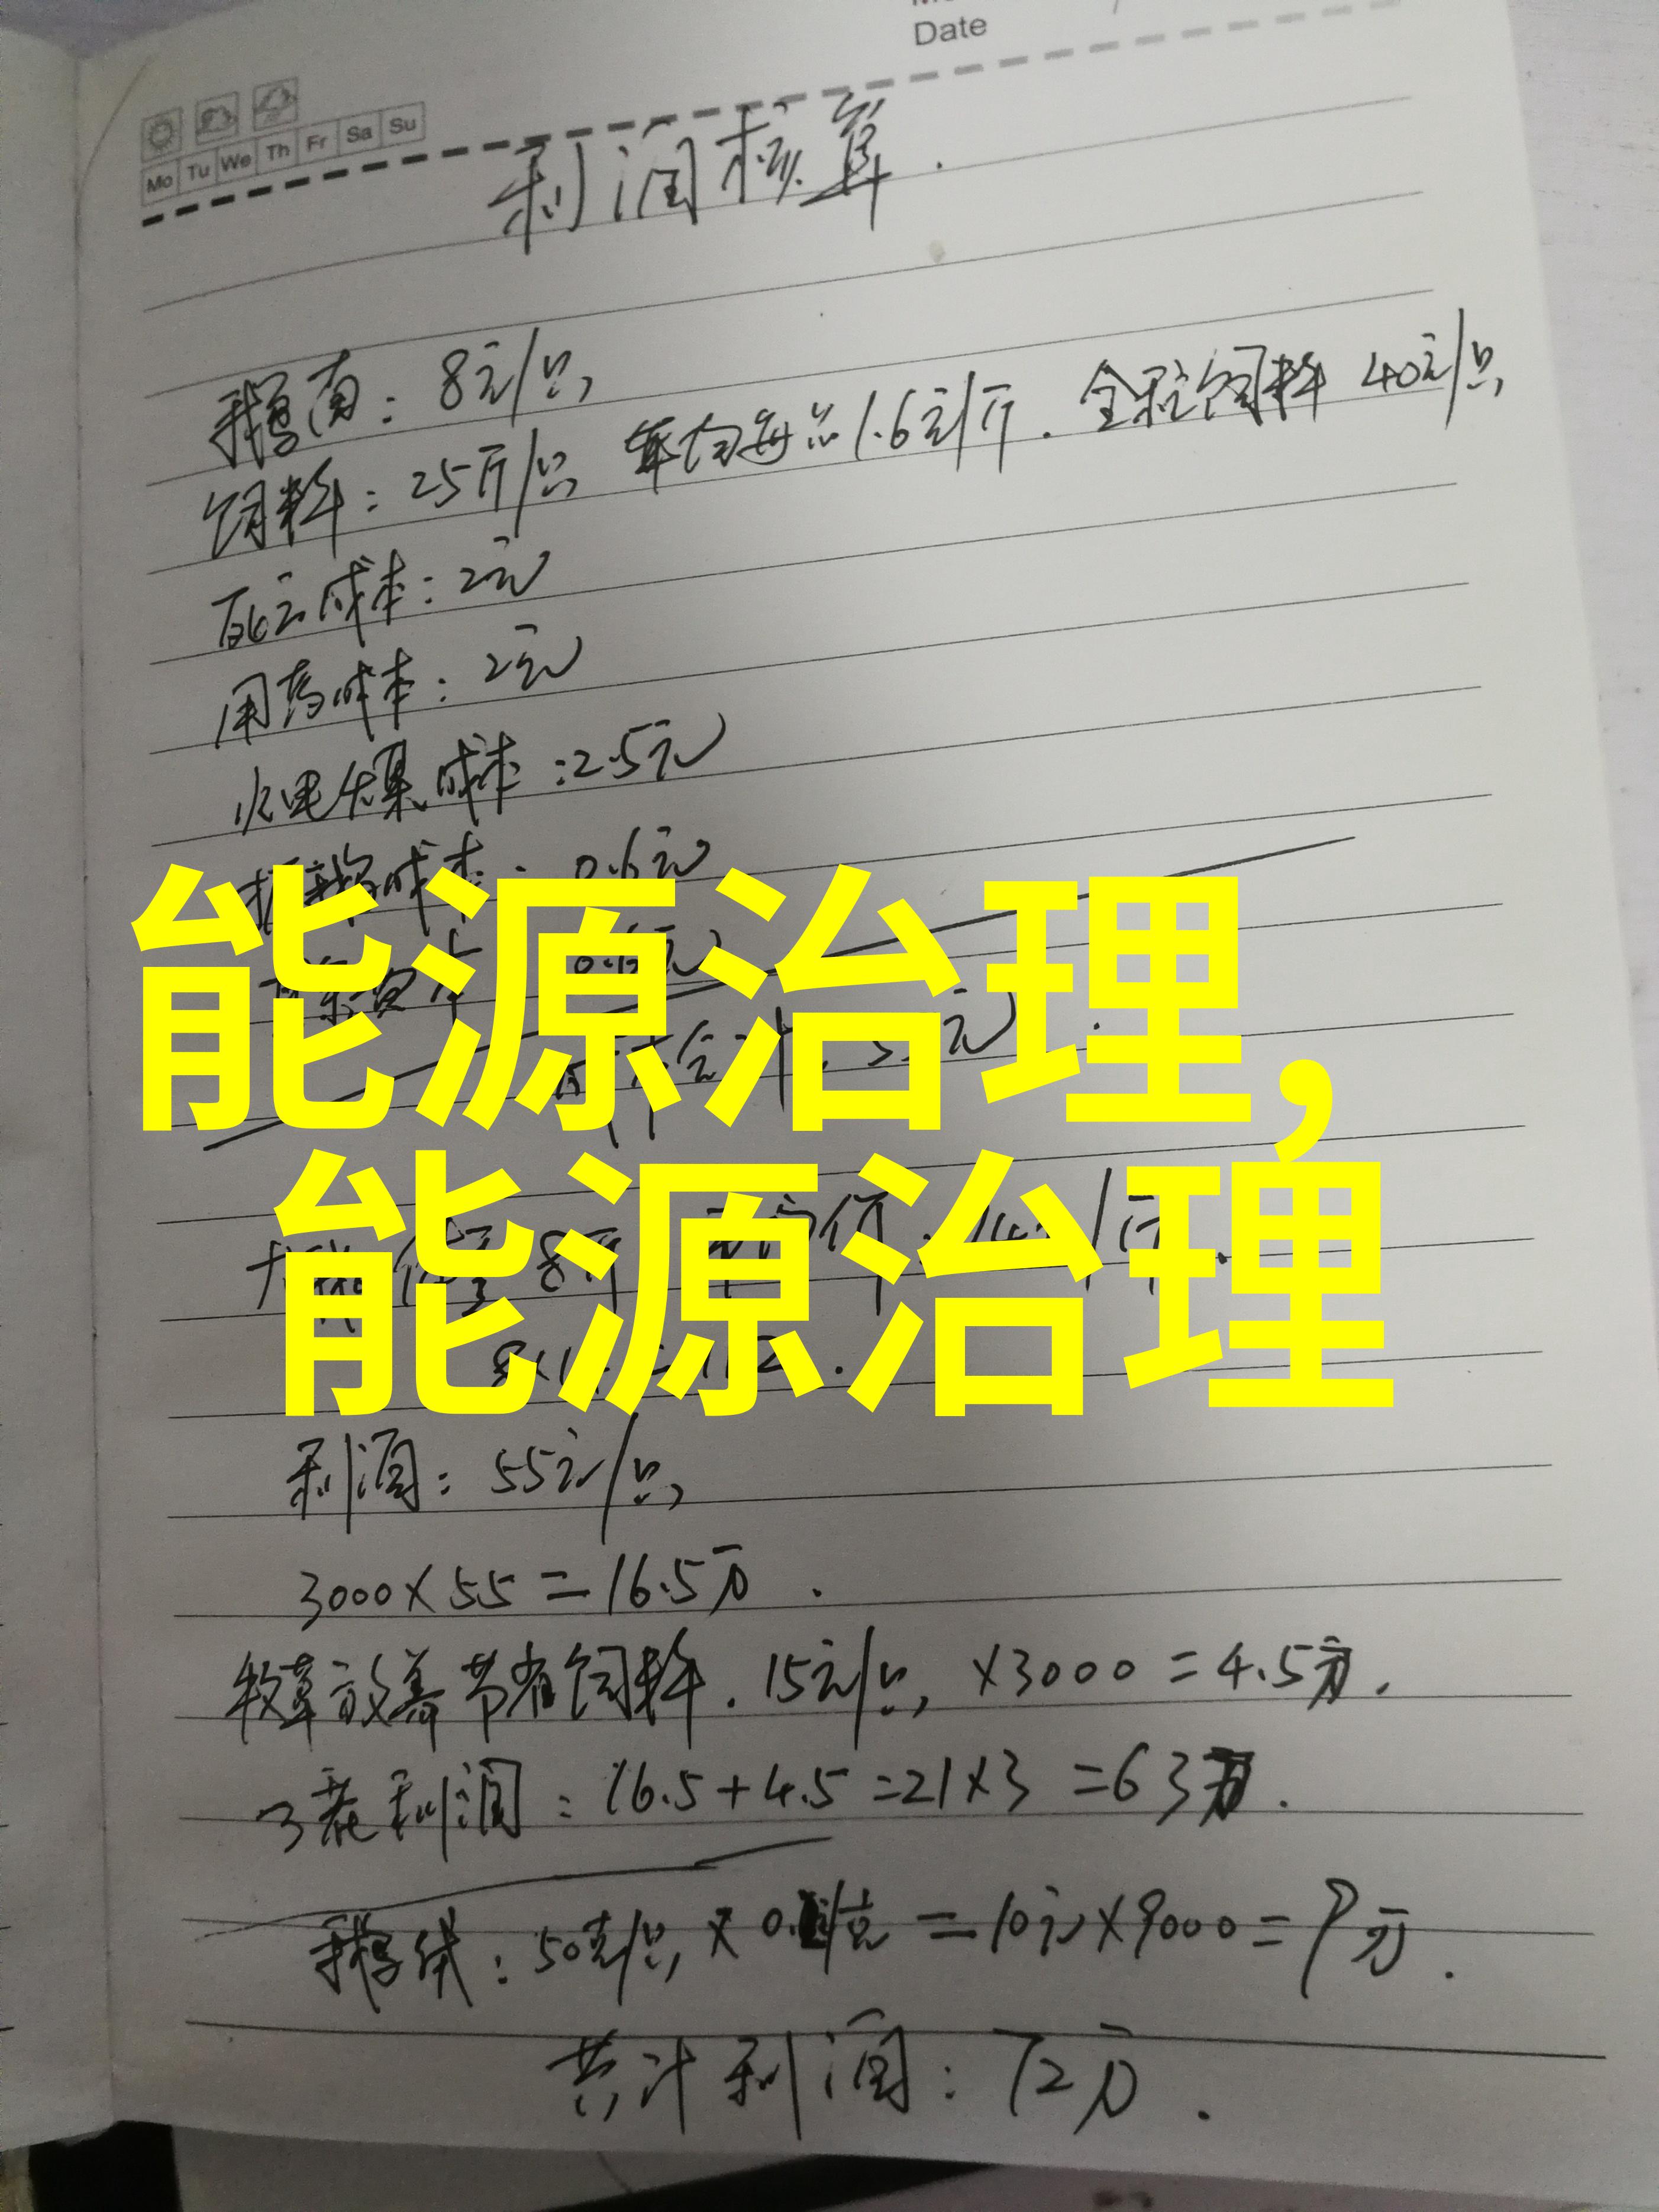 Date
Mo Tu We Th Fr Sa Su
利润核算.
鹅苗: 8元/只
饲料: 25斤/只 平均每斤1.6元/斤. 全程饲料 40元/只
死亡成本: 2元
用药成本: 2元
水电煤成本: 2.5元
成本: 0.6元
能源治理,
能源治理
8斤
利润: 55元/只
3000×55=16.5万.
牧草放养节省饲料. 15元/只 ×3000=4.5万.
3批利润: 16.5+4.5=21×3=63万.
鹅绒: 50克/只 × =10元×9000=9万.
共计利润: 72万.